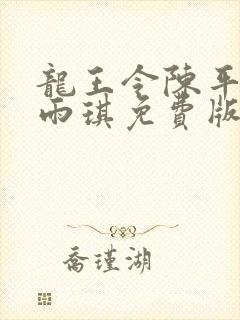 龍王令陳平
雨琪免費版
喬瑾湖